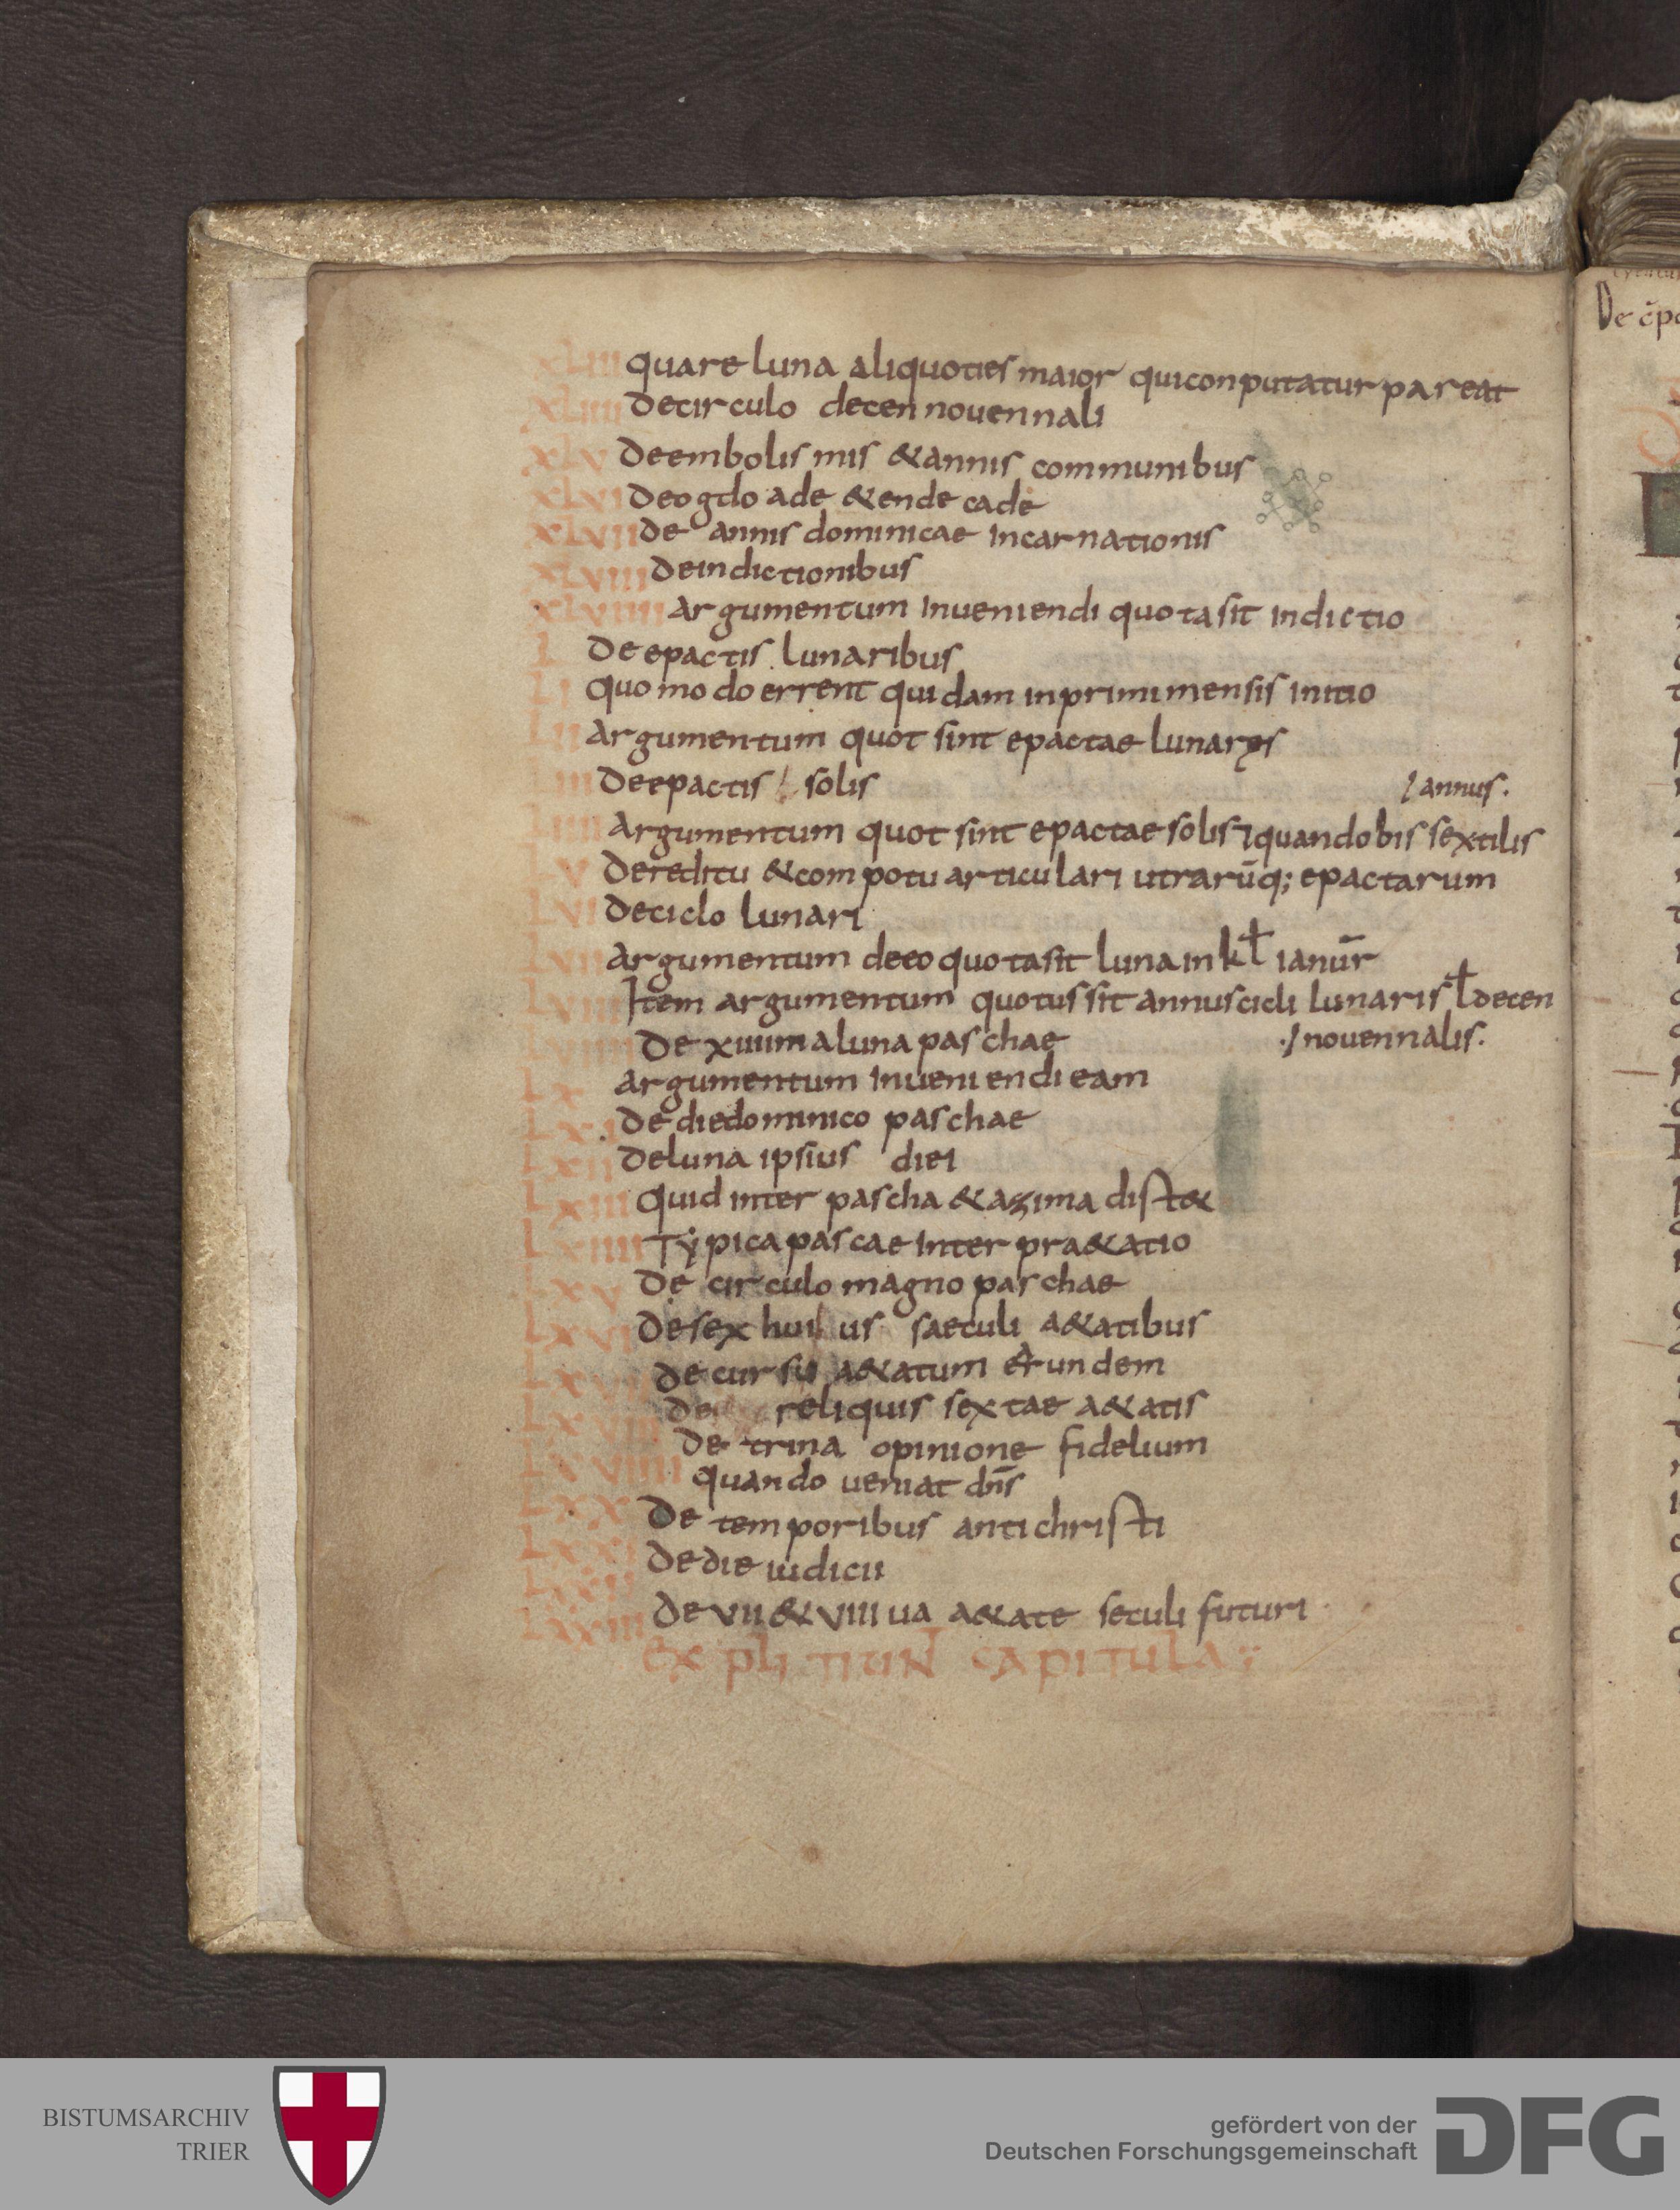 XLIII quare luna aliquoties maior qui conputatur pareat
XLIIII De circulo decennouennali
XLV De embolismis & annis communibus
XLVI De ogdoade & endecade
XLVII De annis dominicae incarnationis
XLVIII De indictionibus
XLVIIII Argumentum inueniendi quota sit indictio
L De epactis lunaribus
LI Quomodo errent quidam in primi mensis initio
LII Argumentum quot sint epactae lunares
LIII De epactis solis
/ annus.
LIIII Argumentum quot sint epactae solis ⁊ quando bissextilis
LV De reditu & compotu articulari utrarūq; epactarum
LVI De ciclo lunari
LVII Argumentum de eo quota sit luna in kł ianur̄
LVIII Item argumentum quotus sit annus cicli lunaris ł decen
./ nouennalis.
LVIIII De XIIIIma luna paschae
LX Argumentum inueniendi eam
LXI De die dominico paschae
LXII De luna ipsius diei
LXIII Quid inter pascha & azima dist&
LXIIII Typica pascae interpra&atio
LXV De circulo magno paschae
LXVI De sex huius saeculi a&atibus
LXVII De cursu a&atum earundem
LXVIII De reliquis sextae a&atis
LXVIIII De trina opinione fidelium
quando ueniat dn̄s
LXX De temporibus antichristi
LXXI De die iudicii
LXXII De VII & VIIII ua a&ate seculi futuri
LXXIII
expli tiun capitula
De c̄p
BISTUMSARCHIV
TRIER
gefördert von der
Deutschen Forschungsgemeinschaft
DFG